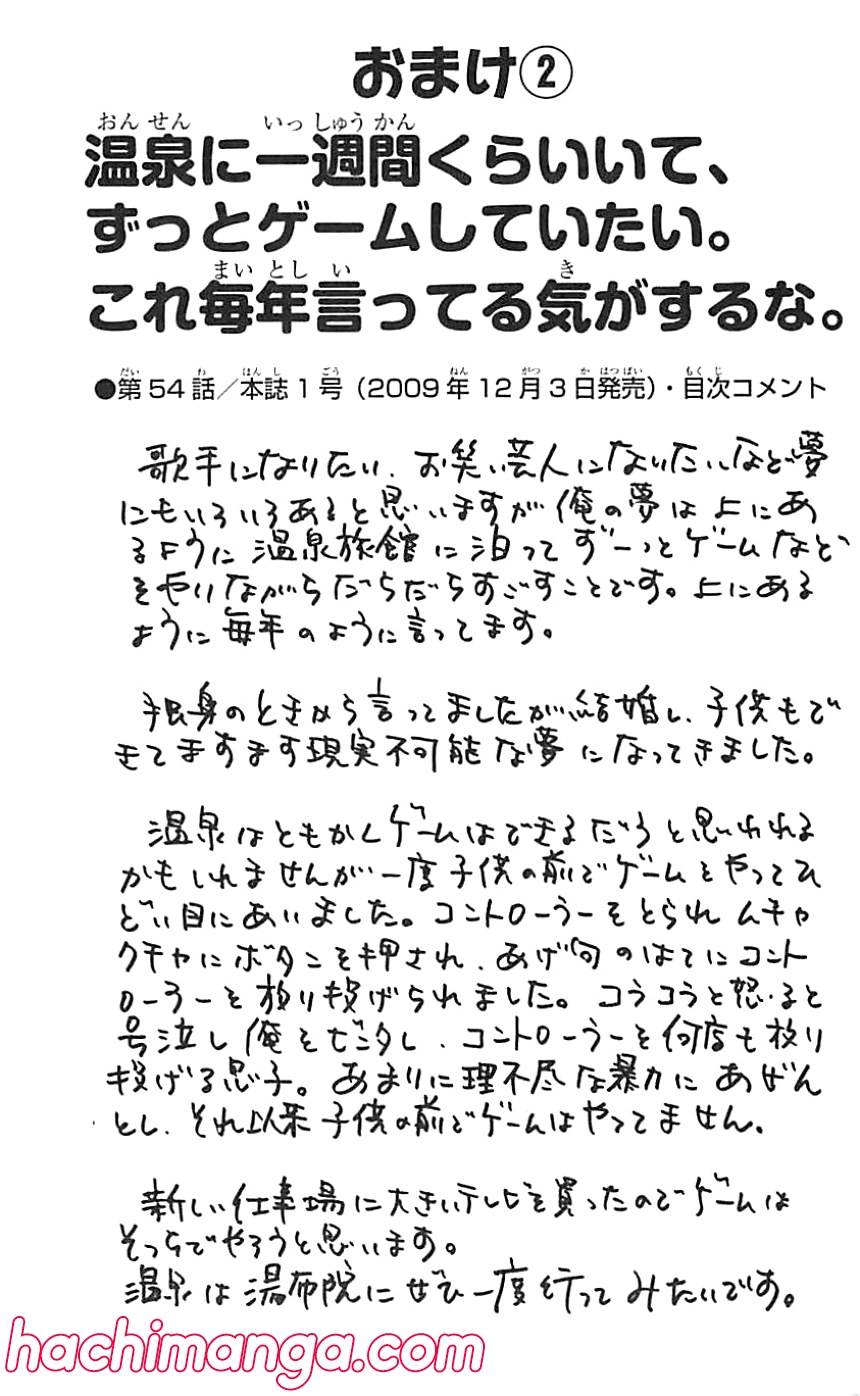 おまけ②
温泉に一週間くらいいて、
ずっとゲームしていたい。
これ毎年言ってる気がするな。
●第54話／本誌1号（2009年12月3日発売）・目次コメント
歌手になりたい、お笑い芸人になりたいなど夢
にもいろいろあると思いますが俺の夢は上にあ
るように温泉旅館に泊ってずーっとゲームなど
をやりながらだらだらすごすことです。上にある
ように毎年のように言ってます。
独身のときから言ってましたが結婚し、子供もで
きてますます現実不可能な夢になってきました。
温泉はともかくゲームはできるだろうと思われる
かもしれませんが一度子供の前でゲームをやってひ
どい目にあいました。コントローラーをとられムチャ
クチャにボタンを押され、あげ句のはてにコント
ローラーを放り投げられました。コラコラと怒ると
号泣し俺をビンタし、コントローラーを何度も放り
投げる息子。あまりに理不尽な暴力にあぜん
とし、それ以来子供の前でゲームはやってません。
新しい仕事場に大きいテレビを買ったのでゲームは
そっちでやろうと思います。
温泉は湯布院にぜひ一度行ってみたいです。
hachimanga.com